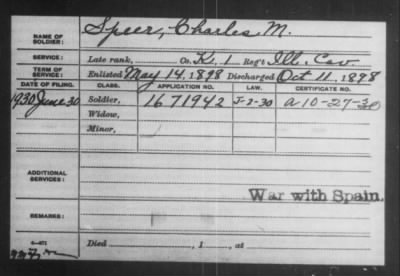 NAME OF SOLDIER: Speer, Charles M.
SERVICE: Late rank, Co. K, 1 Reg't Ill. Cav.
TERM OF SERVICE: Enlisted May 14, 1898 Discharged Oct 11, 1898
DATE OF FILING. CLASS. APPLICATION NO. LAW. CERTIFICATE NO.
1930 June 30 Soldier, 1671942 J-2-30 a 10-27-30
Widow,
Minor,
ADDITIONAL SERVICES:
War with Spain.
REMARKS:
Died , 1 , at